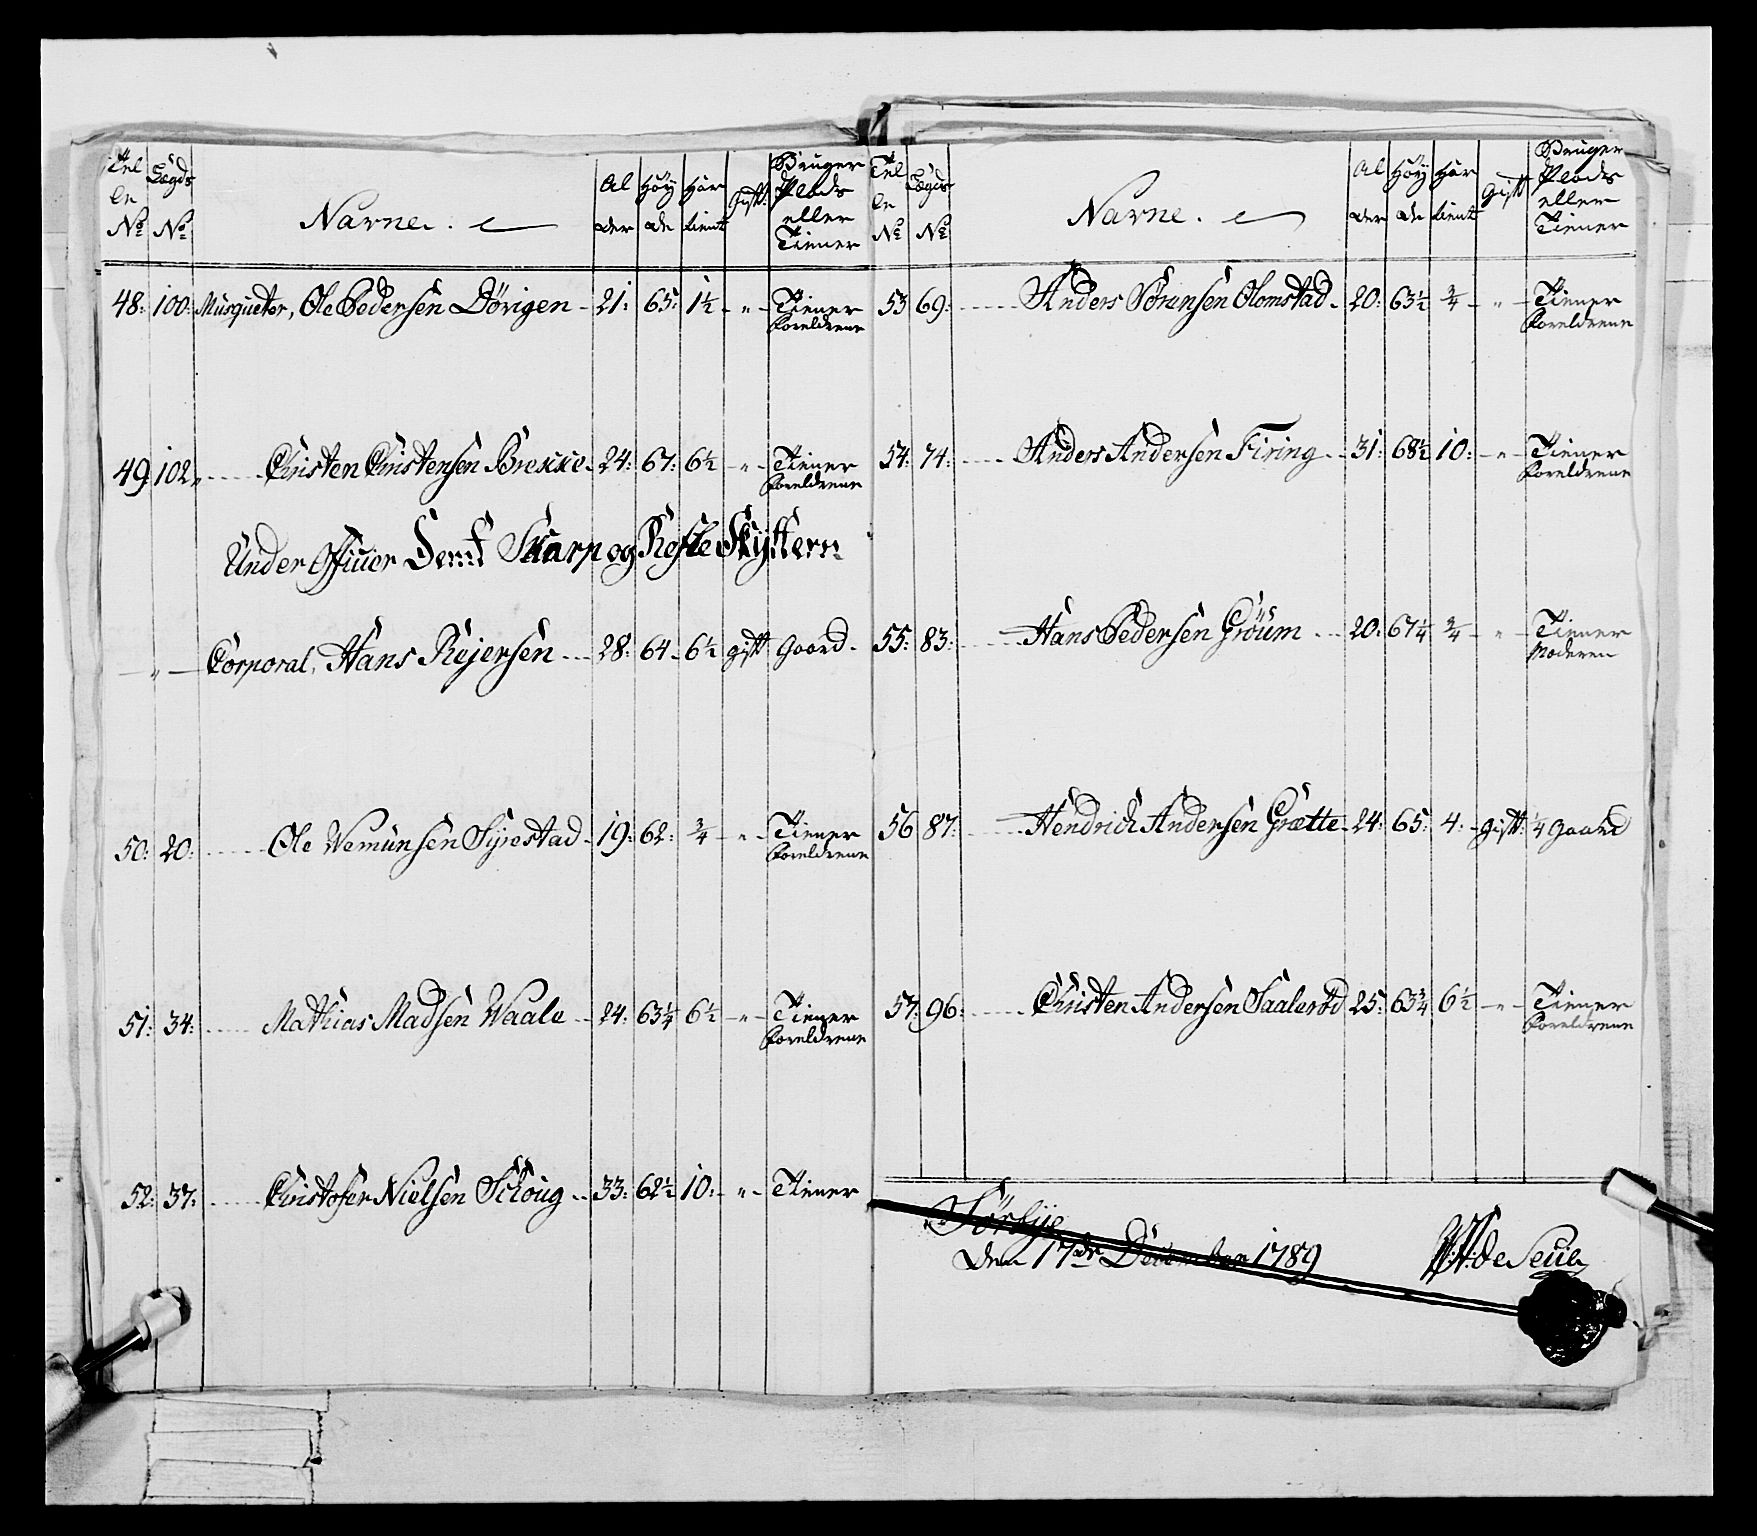 Tel Lægds Al Höy Har Gift. Bruger
le Navne. der de tient Plads
No No eller
Tiener
48: 100: Musqueter, Ole Pedersen Dörigen - 21: 65: 1½ - " - Tiener
Foreldrene
49 102, Christen Christensen Brekke. 24: 67: 6½ - " - Tiener
Foreldrene
Under Officier Samt Skarp og Refle Skyttern
" Corporal, Hans Rejersen 28: 64. 6½ gift Gaard.
50: 20: Ole Wemunsen Syrestad - 19: 62: ¾ - " - Tiener
Foreldrene
51: 34: Mathias Madsen Waale 24: 63¼ 6½ - " - Tiener
Foreldrene
52: 37: Christofer Nielsen Schoug 33: 62½ 10: - " - Tiener
Tel Lægds Al Höy Har Gift Bruger
le Navne. der de tient Plads
No No eller
Tiener
53 69: Anders Sörensen Olomstad. 20: 63½ ¾ - " - Tiener
Foreldrene
54: 74: Anders Andersen Firing 31: 68½ 10: - " - Tiener
Foreldrene
55: 83: Hans Pedersen Gröum 20: 67¼ ¾ - " - Tiener
Moderen
56 87: Hendrich Andersen Grætte 24: 65: 4. gift: ¼ Gaard
57: 96: Christen Andersen Saaleröd 25: 63¾ 6½ - " - Tiener
Foreldrene
Sörbye
den 17de December 1789 de Seue